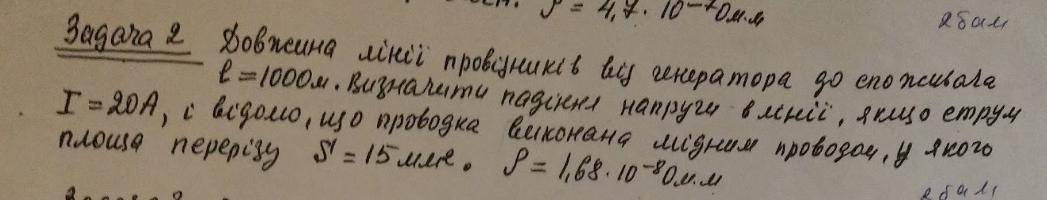 ρ = 4,7 · 10⁻⁷ Ом.м
2 бал
Задача 2 Довжина лінії провідників від генератора до споживача
l = 1000м. Визначити падіння напруги в лінії, якщо струм
I = 20А, і відомо, що проводка виконана мідним проводом, у якого
площа перерізу S = 15 мм². ρ = 1,68 · 10⁻⁸ Ом.м